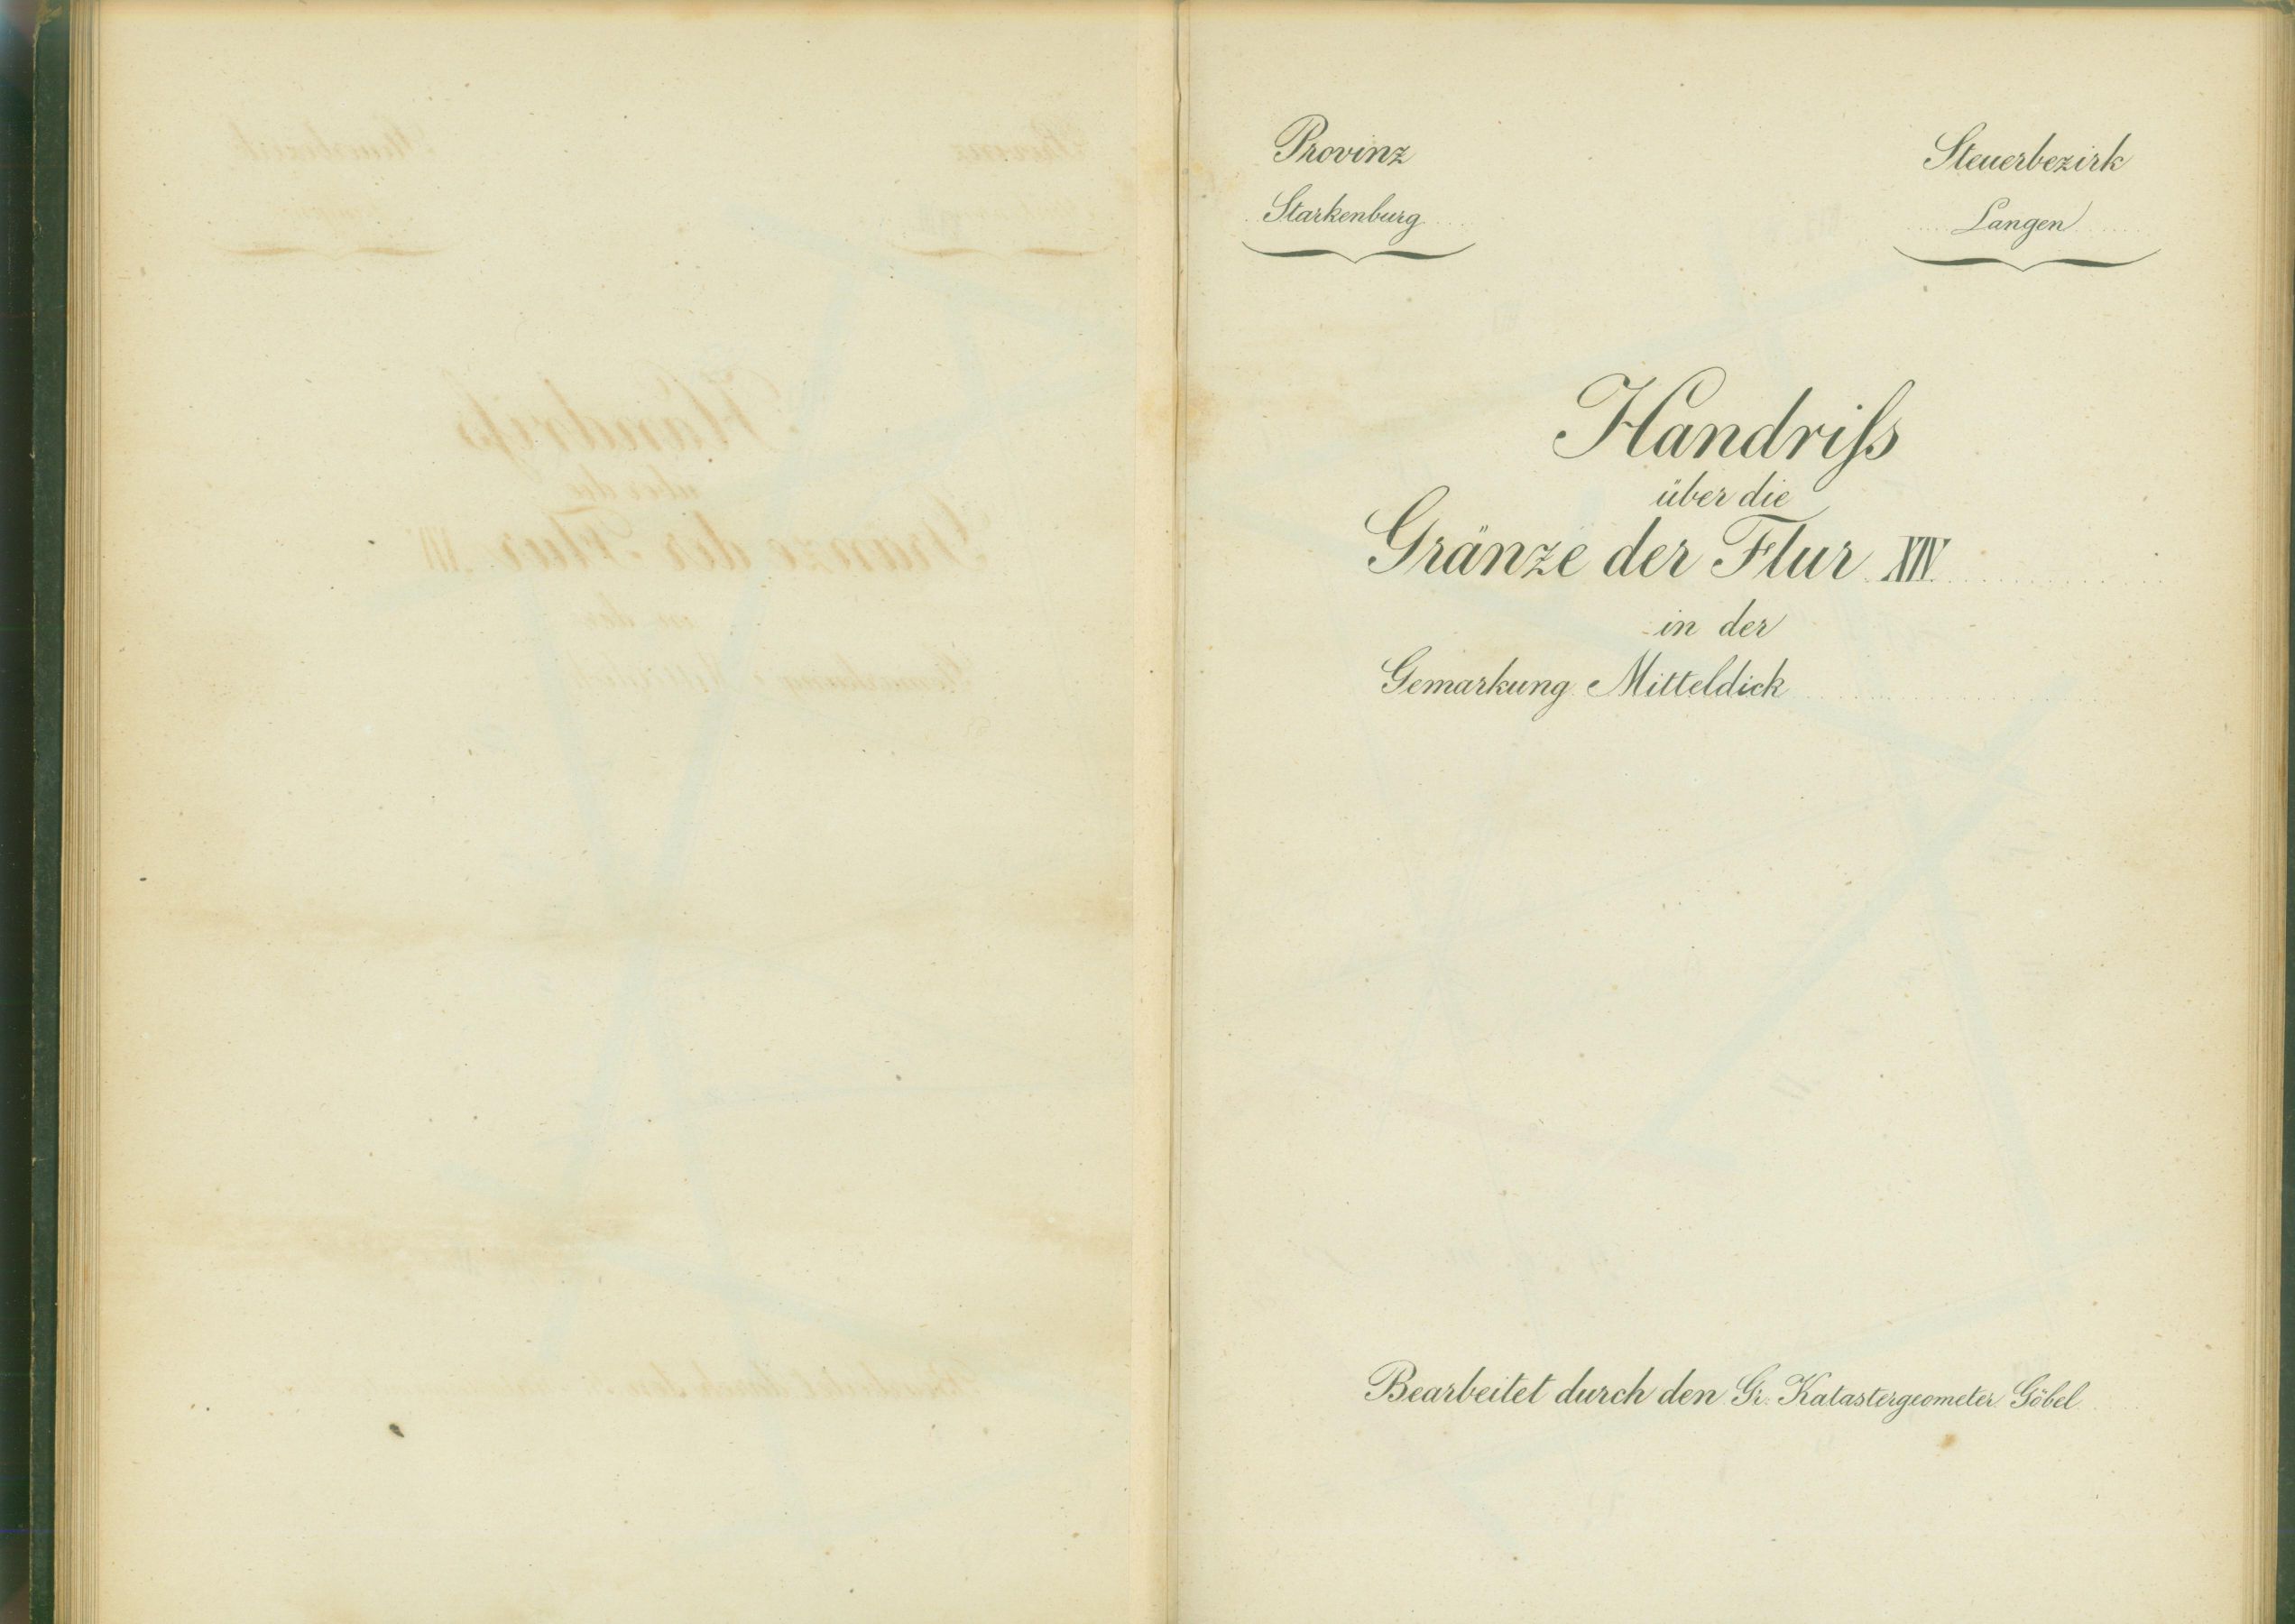 Provinz
Starkenburg
Steuerbezirk
Langen
Handriſs
über die
Gränze der Flur XIV
in der
Gemarkung Mitteldick
Bearbeitet durch den Gr. Katastergeometer Göbel